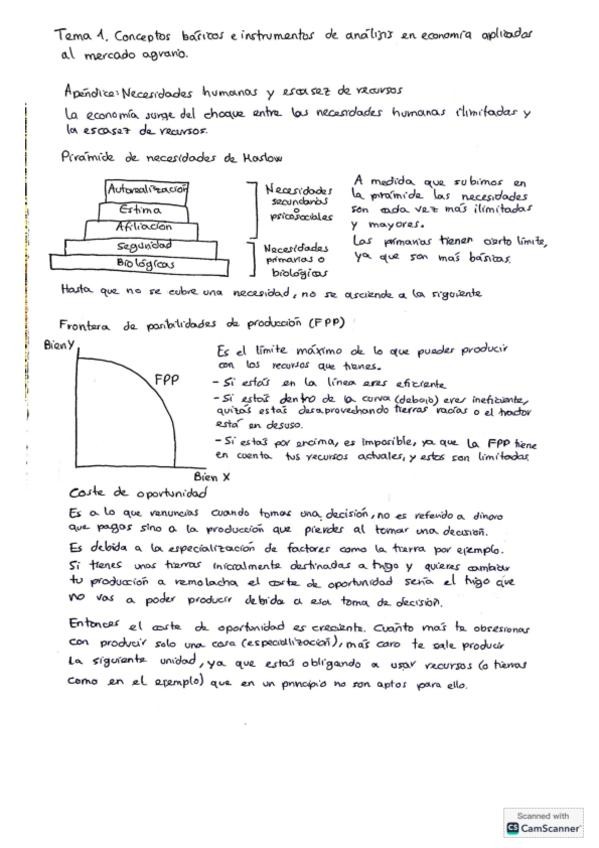 Tema 1. Conceptos básicos e instrumentos de análisis en economía aplicados
al mercado agrario.
Apéndice: Necesidades humanas y escasez de recursos
La economía surge del choque entre las necesidades humanas ilimitadas y
la escasez de recursos.
Pirámide de necesidades de Maslow
Autorrealización
Estima
Afiliación
Seguridad
Biológicas
Necesidades
secundarias
o
psicosociales
Necesidades
primarias o
biológicas
A medida que subimos en
la pirámide las necesidades
son cada vez más ilimitadas
y mayores.
Las primarias tienen cierto límite,
ya que son más básicas.
Hasta que no se cubre una necesidad, no se asciende a la siguiente
Frontera de posibilidades de producción (FPP)
Bien Y
FPP
Bien X
Es el límite máximo de lo que puedes producir
con los recursos que tienes.
- Si estás en la línea eres eficiente
- Si estás dentro de la curva (debajo) eres ineficiente,
quizás estás desaprovechando tierras vacías o el tractor
está en desuso.
- Si estás por encima, es imposible, ya que la FPP tiene
en cuenta tus recursos actuales, y estos son limitados.
Coste de oportunidad
Es a lo que renuncias cuando tomas una decisión, no es referido a dinero
que pagas sino a la producción que pierdes al tomar una decisión.
Es debida a la especialización de factores como la tierra por ejemplo.
Si tienes unas tierras inicialmente destinadas a trigo y quieres cambiar
tu producción a remolacha el coste de oportunidad sería el trigo que
no vas a poder producir debida a esa toma de decisión.
Entonces el coste de oportunidad es creciente. Cuánto más te obsesionas
con producir solo una cosa (especiallización), más caro te sale producir
la siguiente unidad, ya que estás obligando a usar recursos (o tierras
como en el ejemplo) que en un principio no son aptos para ello.
Scanned with
CS CamScanner